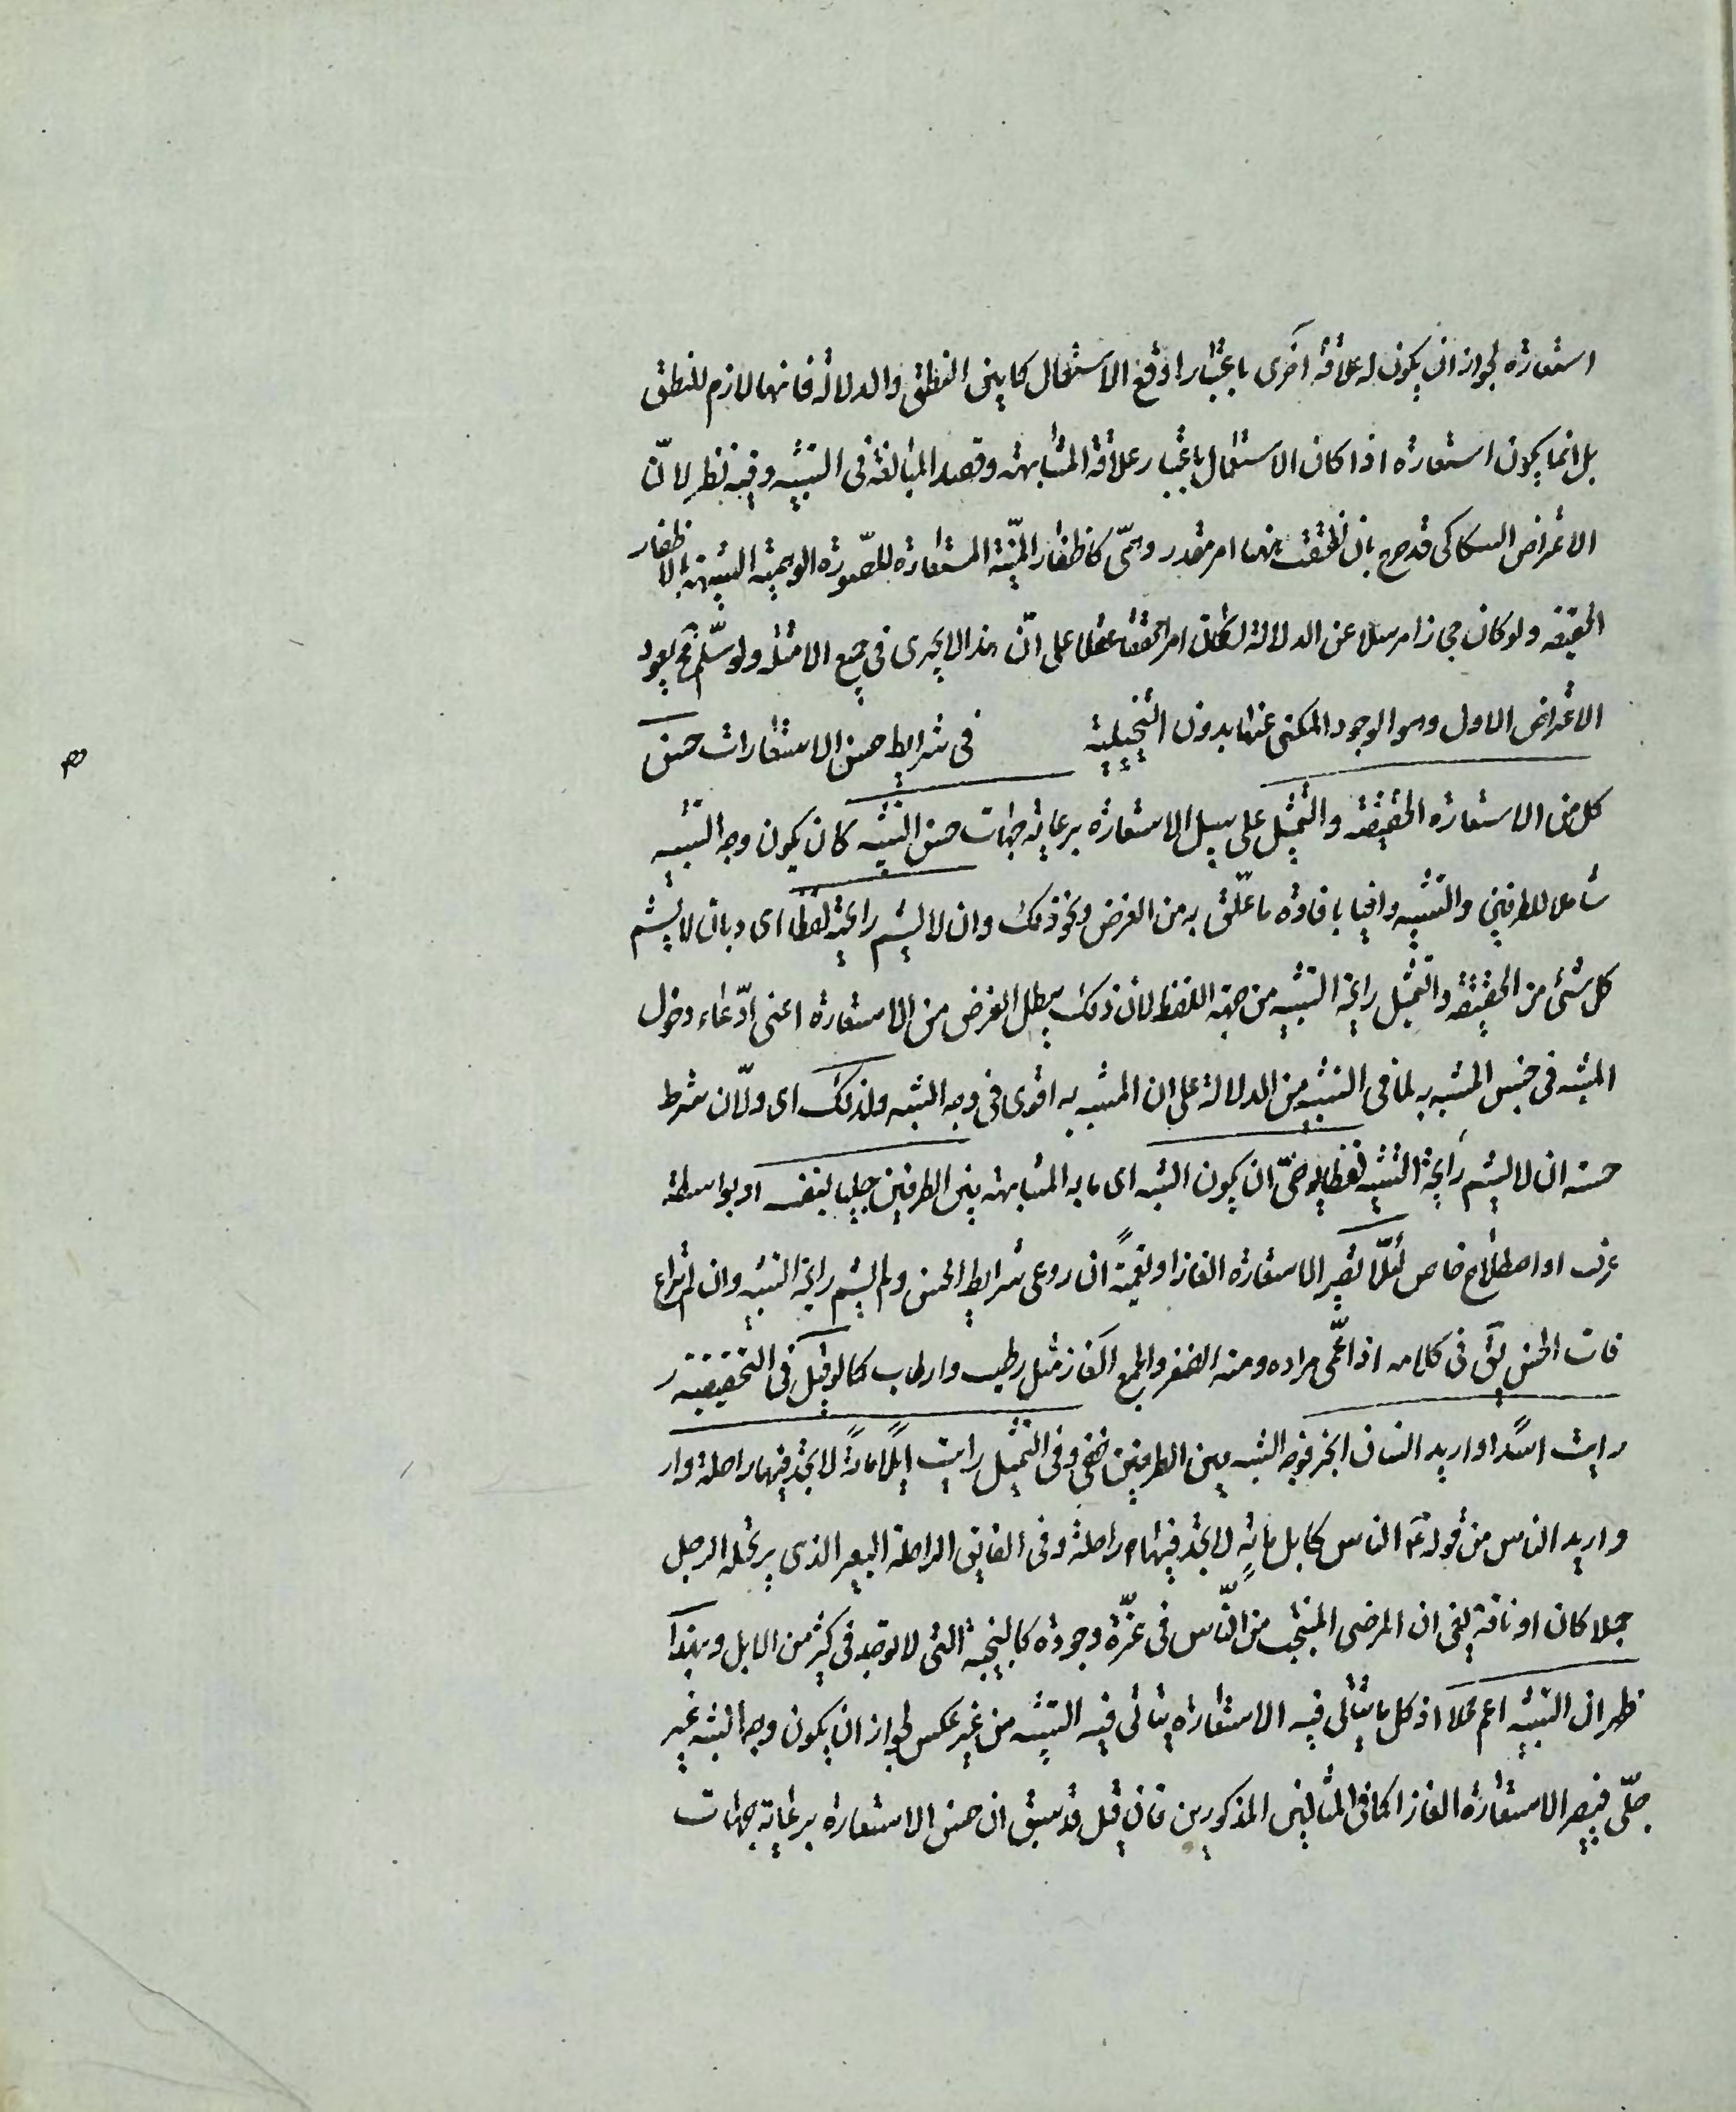 استعارة لجواز ان يكون له علاقة اخرى باعتبارها وقع الاستعمال كما بين النطق والدلالة فانها لازم للنطق
بل انما يكون استعارة اذا كان الاستعمال باعتبار علاقة المشابهة وقصد المبالغة فى التشبيه وفيه نظر لانّ
السكاكى قد صرح بان نطقت ههنا امر مقدر وهمّى كاظفار المنيّة المستعارة للصّورة الوهمية الشبيهة بالاظفار
الحقيقه ولو كان مجازا مرسلا عن الدلالة لكان امر محققا عقلا على انّ هذا لا يجرى فى جميع الامثلة ولو سلّم فح يعود
الاعتراض الاول وهو الوجود المكنى عنها بدون التخييلية فى شرايط حسن الاستعارات حسن
كل من الاستعارة الحقيقه والتمثيل على سبيل الاستعارة برعاية جهات حسن التشبيه كان يكون وجه التشبيه
شاملا للطرفين والتشبيه وافيا بافادة ما علّق به من الغرض ونحو ذلك وان لا يشم رايحته لفظا اى وبان لا يشم
كل شئ من الحقيقه والتمثيل رايحة التشبيه من جهة اللفظ لان ذلك يبطل الغرض من الاستعارة اعنى ادّعاء دخول
المشبه فى جنس المشبه به لما فى التشبيه من الدلالة على ان المشبه به اقوى فى وجه الشبه ولذلك اى ولانّ شرط
حسنه ان لا يشم رايحة التشبيه لفظا يوصىّ ان يكون الشبه اى ما به المشابهة بين الطرفين جليا بنفسه او بواسطة
عرف او اصطلاح خاص لئلّا تصير الاستعارة الغازا وتعميةً ان روعى شرايط الحسن ولم يشم رايحة التشبيه وان لم تراع
فات الحسن يق فى كلامه اذا عمّى مراده ومنه اللغز والجمع الغاز مثل رطب وارطاب كما لو قيل فى التحقيقية
رايت اسدًا واريد انسان ابخر فوجه الشبه بين الطرفين خفى وفى التمثيل رايت ابلًا مائةً لا تجد فيها راحلة وار
واريد الناس من قوله ع الناس كابل مائةٍ لا تجد فيها راحلة وفى الفايق الراحلة البعير الذى يرتحله الرجل
جملا كان او ناقة يعنى ان المرضى المنتجب من النّاس فى عزّة وجوده كالنجيبة التى لا توجد فى كثير من الابل وبهذا
ظهر ان التشبيه اعم محلا اذ كل ما يتأتى فيه الاستعارة يتأتى فيه التشبيه من غير عكس لجواز ان يكون وجه الشبه غير
جلّى فتصير الاستعارة الغازا كما فى المثالين المذكورين فان قيل قد سبق ان حسن الاستعارة برعاية جهات